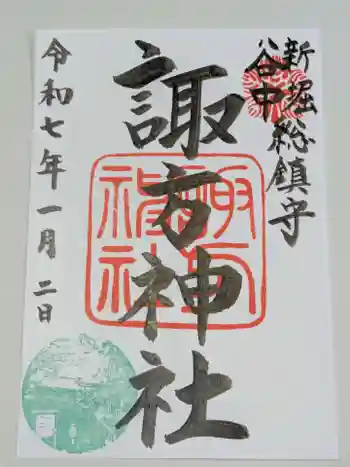 新堀
谷中
総鎮守
諏方神社
令和七年一月二日
諏方
神社